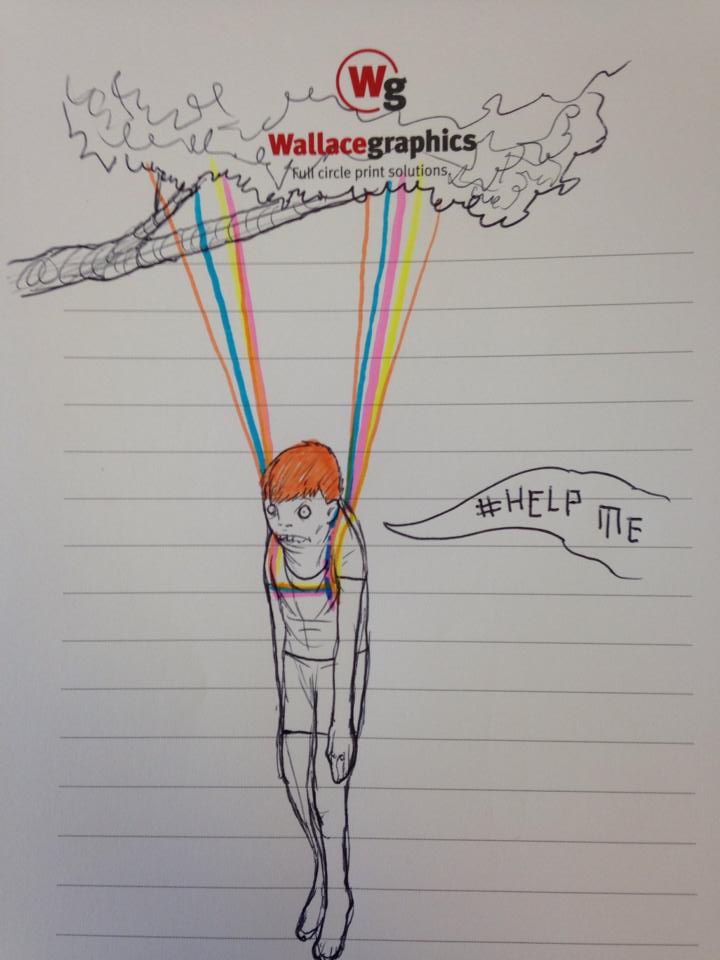 Wg
Wallacegraphics
Full circle print solutions.
#HELP ME